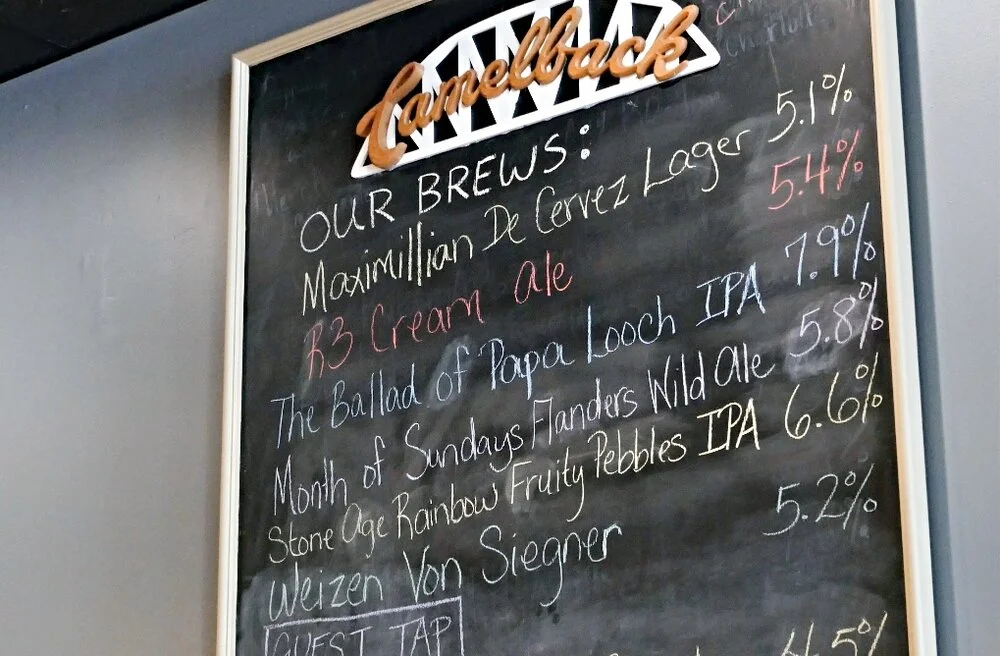 Camelback
OUR BREWS:
Maximillian De Cervez Lager 5.1%
R3 Cream Ale 5.4%
The Ballad of Papa Looch IPA 7.9%
Month of Sundays Flanders Wild Ale 5.8%
Stone Age Rainbow Fruity Pebbles IPA 6.6%
Weizen Von Siegner 5.2%
GUEST TAP
4.5%